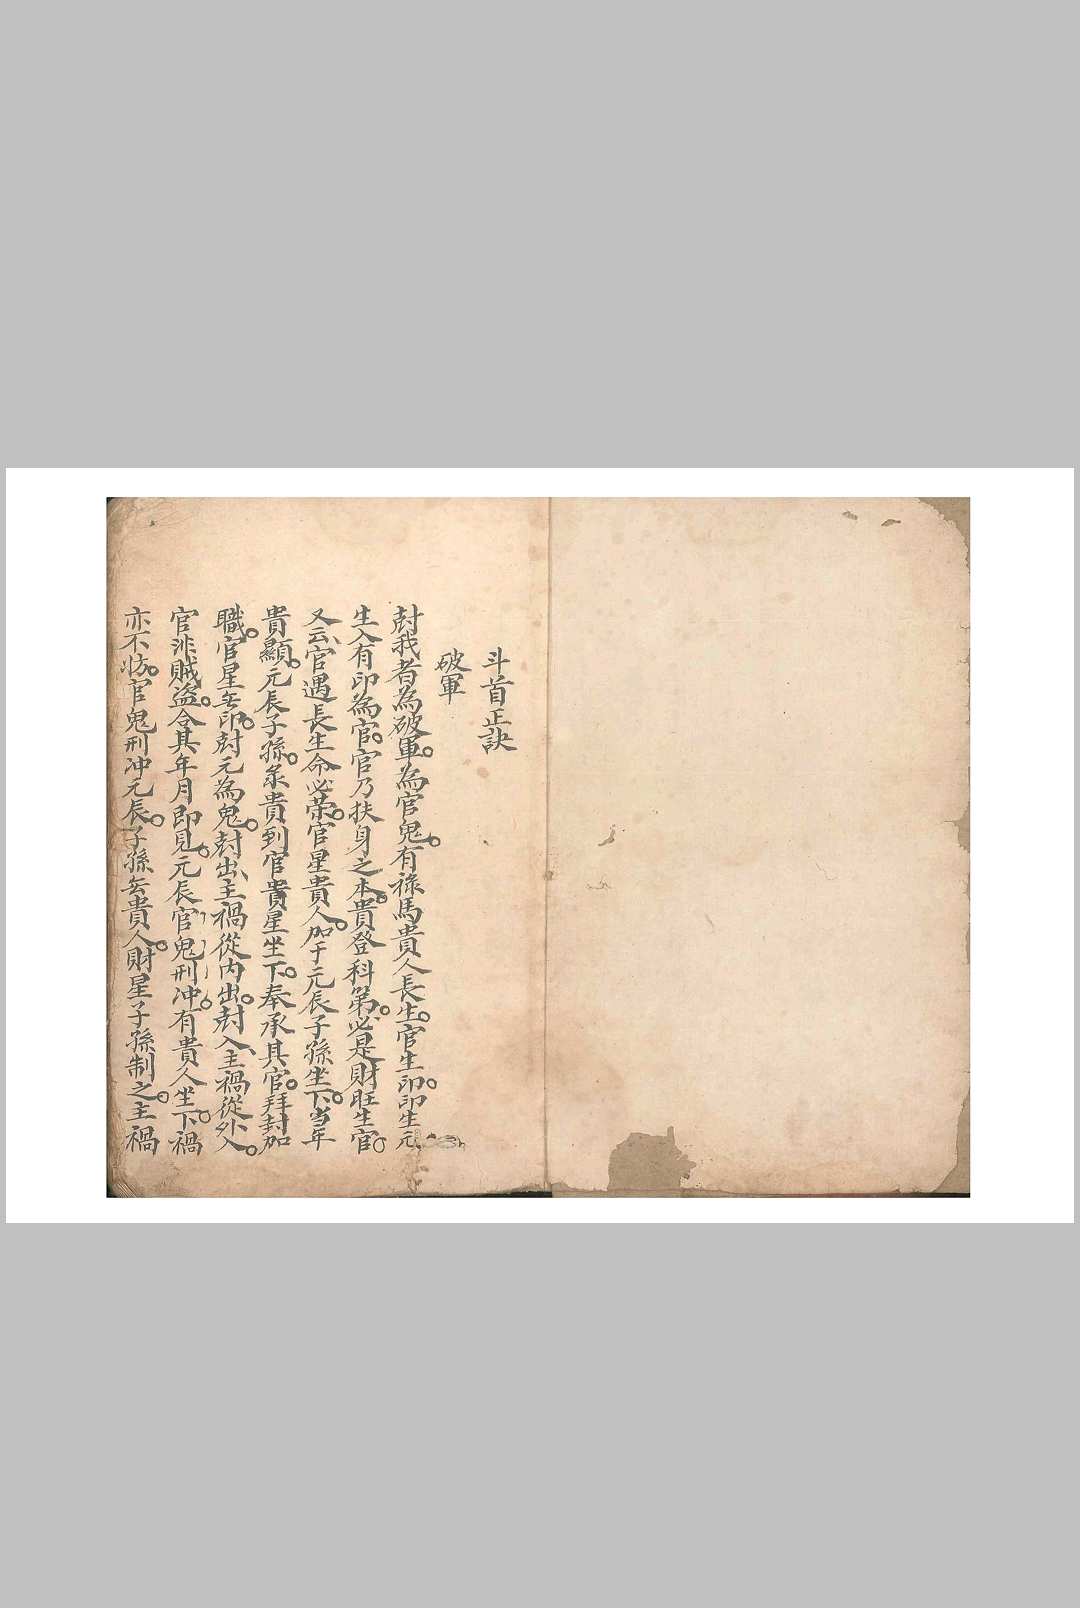 斗首正訣
破軍
尅我者為破軍。為官鬼。有祿馬貴人長生。官生印。印生元
生入有印為官。官乃扶身之本。貴登科第。必是財旺生官。
又云官遇長生命必荣。官星貴人。加于元辰子孫坐下。当年
貴顯。元辰子孫。彖貴到官貴星坐下。奉承其官。拜封加
職。官星無印。尅元為鬼。尅出主禍從内出。尅入主禍從外入。
官非賊盗。合其年月即見。元辰官鬼刑冲。有貴人坐下。禍
亦不妨。官鬼刑冲元辰。子孫無貴人。財星子孫制之。主禍